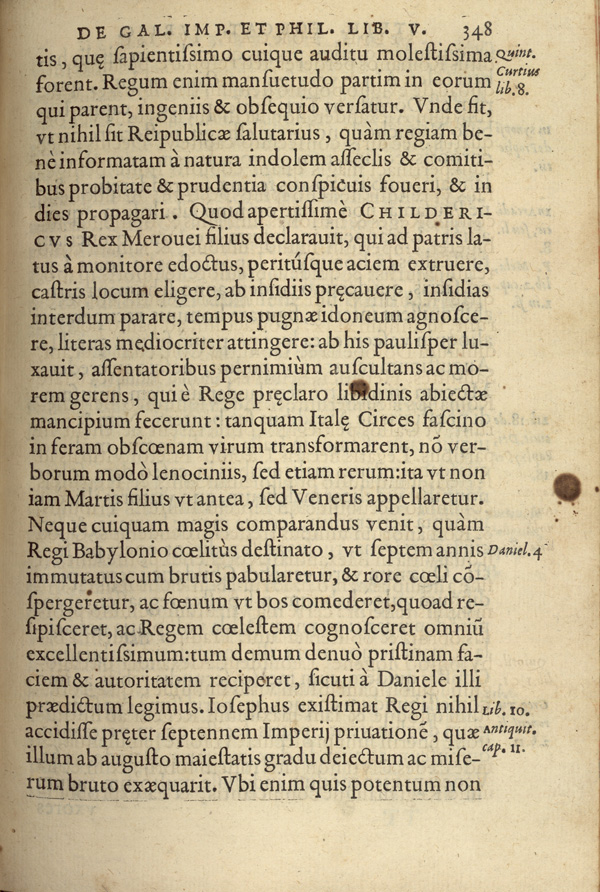 DE GAL. IMP. ET PHIL. LIB. V. 348
tis, quę sapientissimo cuique auditu molestissima Quint.
forent. Regum enim mansuetudo partim in eorum Curtius
lib. 8.
qui parent, ingeniis & obsequio versatur. Vnde fit,
vt nihil sit Reipublicæ salutarius, quàm regiam be-
nè informatam à natura indolem asseclis & comiti-
bus probitate & prudentia conspicuis foueri, & in
dies propagari. Quod apertissimè CHILDERI-
CVS Rex Merouei filius declarauit, qui ad patris la-
tus à monitore edoctus, peritúsque aciem extruere,
castris locum eligere, ab insidiis pręcauere, insidias
interdum parare, tempus pugnæ idoneum agnosce-
re, literas mediocriter attingere: ab his paulisper lu-
xauit, assentatoribus pernimiùm auscultans ac mo-
rem gerens, qui è Rege pręclaro libidinis abiectæ
mancipium fecerunt: tanquam Italę Circes fascino
in feram obscœnam virum transformarent, nō ver-
borum modò lenociniis, sed etiam rerum: ita vt non
iam Martis filius vt antea, sed Veneris appellaretur.
Neque cuiquam magis comparandus venit, quàm
Regi Babylonio cœlitùs destinato, vt septem annis Daniel. 4
immutatus cum brutis pabularetur, & rore cœli cō-
spergeretur, ac fœnum vt bos comederet, quoad re-
sipisceret, ac Regem cœlestem cognosceret omniū
excellentissimum: tum demum denuò pristinam fa-
ciem & autoritatem reciperet, sicuti à Daniele illi
prædictum legimus. Iosephus existimat Regi nihil Lib. 10.
accidisse pręter septennem Imperij priuationē, quæ Antiquit.
cap. 11.
illum ab augusto maiestatis gradu deiectum ac mise-
rum bruto exæquarit. Vbi enim quis potentum non